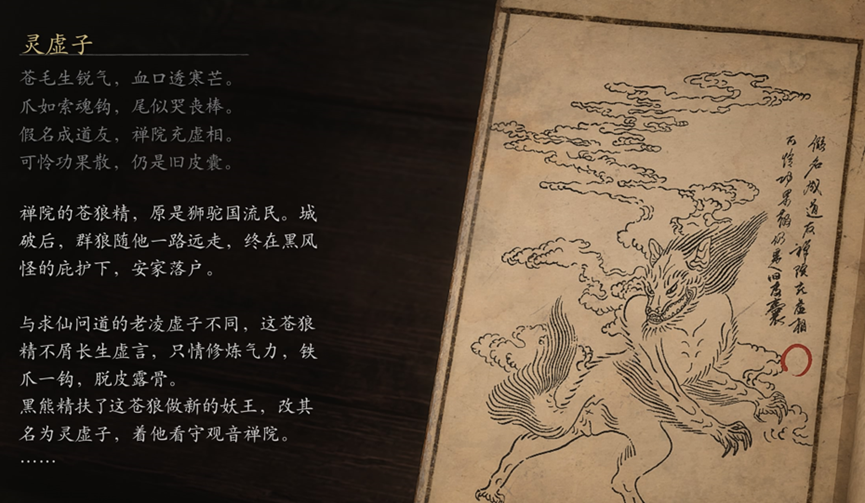 灵虚子
苍毛生锐气，血口透寒芒。
爪如索魂钩，尾似哭丧棒。
假名成道友，禅院充虚相。
可怜功果散，仍是旧皮囊。
禅院的苍狼精，原是狮驼国流民。城
破后，群狼随他一路远走，终在黑风
怪的庇护下，安家落户。
与求仙问道的老凌虚子不同，这苍狼
精不屑长生虚言，只情修炼气力，铁
爪一钩，脱皮露骨。
黑熊精扶了这苍狼做新的妖王，改其
名为灵虚子，着他看守观音禅院。
……
假名成道友禅院充虚相
可怜功果散仍是旧皮囊